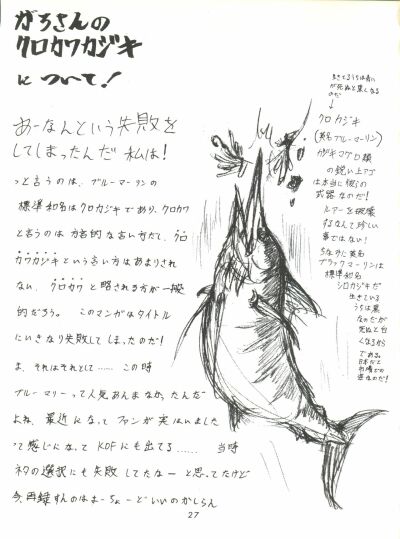 がちさんの
クロカワカジキ
について!
あーなんという失敗を
してしまったんだ 私は!
っと言うのは、ブルーマーリンの
標準和名はクロカジキであり、クロカワ
と言うのは方言的な言い方だし、クロ
カワカジキという言い方はあまりされ
ない、クロカワと略される方が一般
的だろう。 このマンガはタイトル
にいきなり失敗してしまったのだ!
ま、それはそれとして…… この時
ブルーマリーって人気あんまなかったんだ
よね、最近になってファンが実はいました
って感じになってKOFにも出てる…… 当時
ネタの選択にも失敗してたなーと思ってたけど
今、再録すんのはまーちょーどいいのかしらん
生きてるうちは青い
が死ぬと黒くなる
のだ
↓
クロカジキ
(英名ブルーマーリン)
カジキマグロ類
の鋭い上アゴ
は本当に彼らの
武器なのだ!
ルアーを破壊
するなんて珍しい
事ではない!
ちなみに英名
ブラックマーリンは
標準和名
シロカジキだ
生きている
うちは黒
なのだが
死ぬと白
くなるから
である。
日本だと
市場での
逆なのだ!
27